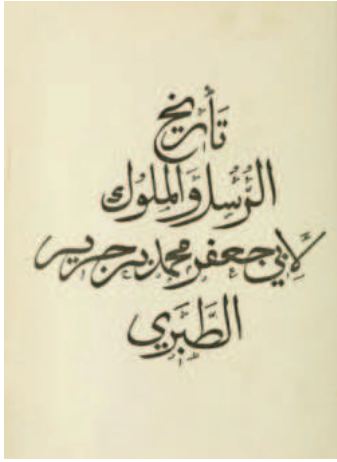 تأريخ
الرُّسُل وَالمُلُوك
لِأَبي جعفر محمد بن جرير
الطَّبَرِي